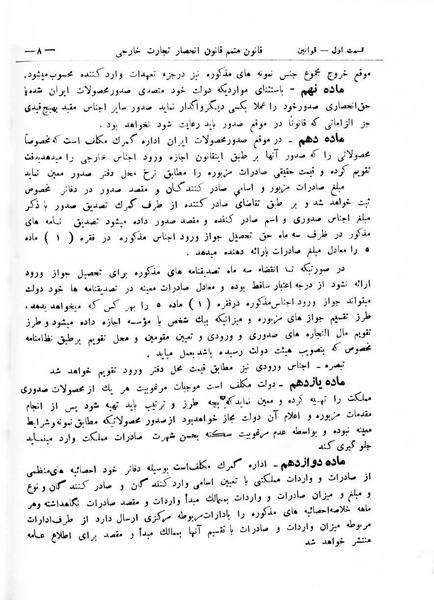 قسمت اول – قوانین    قانون متمم قانون انحصار تجارت خارجی    – ۸ –
موقع خروج مجموع جنس نمونه های مذکوره نیز درجزء تعهدات وارد کننده محسوب میشود.
ماده نهم – باستثنای مواردیکه دولت خود متصدی صدور محصولات ایران شده یا
حق انحصاری صدور خود را عملا بکسی دیگر واگذار نماید صدور سایر اجناس مقید بهیچ قیدی
جز الزاماتی که قانوناً در موقع صدور باید رعایت شود نخواهد بود.
ماده دهم – در موقع صدور محصولات ایران اداره گمرک مکلف است که مخصوصاً
محصولاتی را که صدور آنها بر طبق اینقانون اجازه ورود اجناس خارجی را میدهد بدقت
تقویم کرده و قیمت حقیقی صادرات مزبوره را مطابق نرخ محل دفتر صدور معین نماید
مبلغ صادرات مزبور و اسامی صادر کنندگان و مقصد صدور در دفاتر مخصوص
ثبت خواهد شد و بر طبق تقاضای صادر کننده از طرف گمرک تصدیق صدور با ذکر
مبلغ اجناس صدوری و اسم صادر کننده و مقصد صدور داده میشود تصدیق نامه های
مذکور در ظرف سه ماه حق تحصیل جواز ورود اجناس مذکوره در فقره (۱) ماده
۵ را معادل مبلغ صادرات بارائه دهنده میدهد.
در صورتیکه تا انقضاء سه ماه تصدیقنامه های مذکوره برای تحصیل جواز ورود
ارائه نشود از درجه اعتبار ساقط بوده و معادل صادرات معینه در تصدیقنامه ها خود دولت
میتواند جواز ورود اجناس مذکوره درفقره (۱) ماده ۵ را بهر کس که میخواهد بدهد.
طرز تقسیم جواز های مزبوره و میزانیکه بیک شخص یا مؤسسه اجازه داده میشود و طرز
تقویم مال التجاره های صدوری و ورودی و تعیین مقومین و محل تقویم برطبق نظامنامه
مخصوص که بتصویب هیئت دولت رسیده باشد بعمل میاید.
تبصره – اجناس ورودی نیز مطابق قیمت محل دفتر ورود تقویم خواهد شد
ماده یازدهم – دولت مکلف است موجبات مرغوبیت هر یک از محصولات صدوری
مملکت را تهیه کرده و معین نماید که بچه طرز و ترتیب باید تهیه شود پس از انجام
مقدمات مزبوره و اعلام آن دولت مجاز خواهد بود از صدور محصولاتیکه مطابق نمونه و شرایط
معینه نبوده و بواسطه عدم مرغوبیت سکته بحسن شهرت صادرات مملکت وارد مینماید
جلو گیری کند
ماده دوازدهم – اداره گمرک مکلف است بوسیله دفاتر خود احصائیه های منظمی
از صادرات و واردات مملکتی با تعیین اسامی وارد کنندگان و صادر کنندگان و نوع
و مبلغ و میزان صادرات و واردات و ممالک مبدأ واردات و مقصد صادرات نگاهداشته و هر
ماهه خلاصه احصائیه های مذکوره را بادارات مربوطه مرکزی ارسال دارد از طرف ادارات
مربوطه میزان واردات و صادرات با تقسیم آنها بممالک مبدأ و مقصد برای اطلاع عامه
منتشر خواهد شد